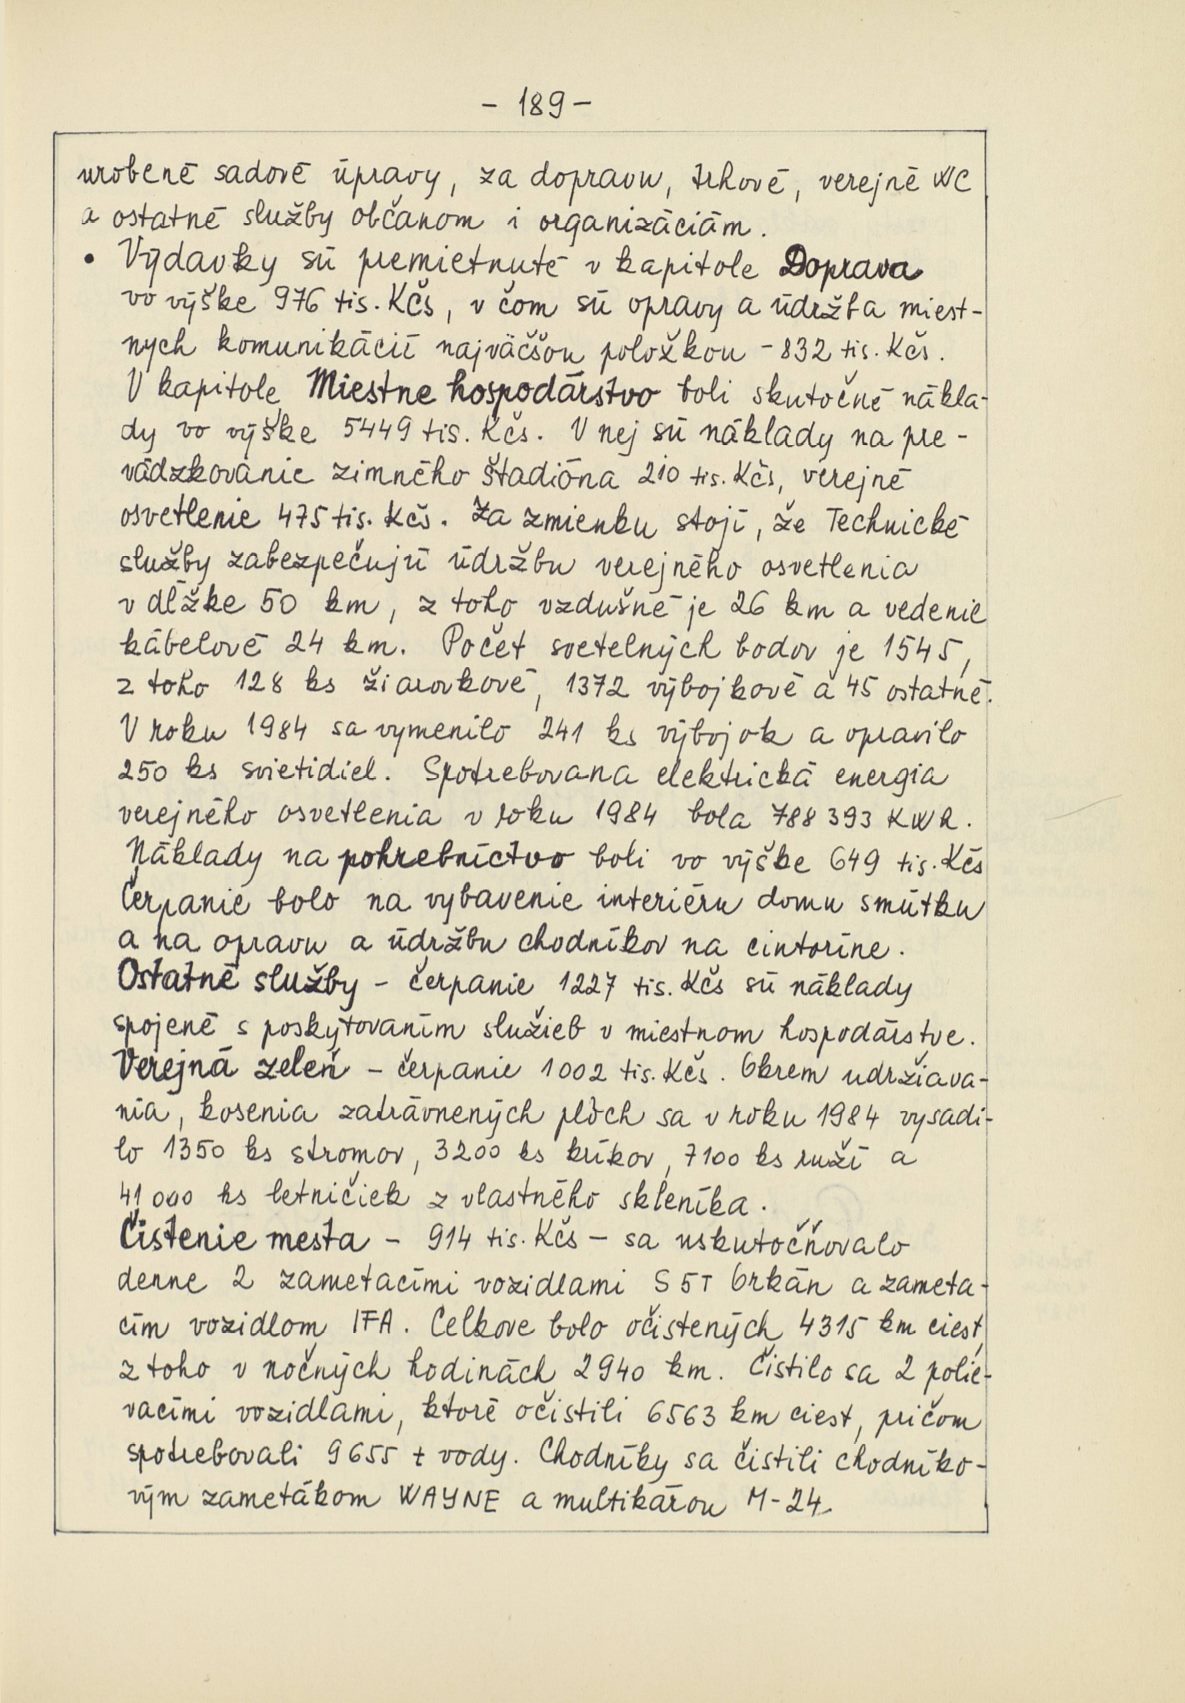 - 189 -
urobené sadové úpravy, za dopravu, trhové, verejné WC
a ostatné služby občanom i organizáciám.
• Výdavky sú premietnuté v kapitole Doprava
vo výške 976 tis. Kčs, v čom sú opravy a údržba miest-
nych komunikácií najväčšou položkou - 832 tis. Kčs.
V kapitole Miestne hospodárstvo boli skutočné nákla-
dy vo výške 5449 tis. Kčs. V nej sú náklady na pre-
vádzkovanie zimného štadióna 210 tis. Kčs, verejné
osvetlenie 475 tis. Kčs. Za zmienku stojí, že Technické
služby zabezpečujú údržbu verejného osvetlenia
v dĺžke 50 km, z toho vzdušné je 26 km a vedenie
kábelové 24 km. Počet svetelných bodov je 1545,
z toho 128 ks žiarovkové, 1372 výbojkové a 45 ostatné.
V roku 1984 sa vymenilo 241 ks výbojok a opravilo
250 ks svietidiel. Spotrebovaná elektrická energia
verejného osvetlenia v roku 1984 bola 788 393 KWh.
Náklady na pohrebníctvo boli vo výške 649 tis. Kčs
Čerpanie bolo na vybavenie interiéru domu smútku
a na opravu a údržbu chodníkov na cintoríne.
Ostatné služby - čerpanie 1227 tis. Kčs sú náklady
spojené s poskytovaním služieb v miestnom hospodárstve.
Verejná zeleň - čerpanie 1002 tis. Kčs. Okrem udržiava-
nia, kosenia zatrávnených plôch sa v roku 1984 vysadi-
lo 1350 ks stromov, 3200 ks kríkov, 7100 ks ruží a
41 000 ks letničiek z vlastného skleníka.
Čistenie mesta - 914 tis. Kčs - sa uskutočňovalo
denne 2 zametacími vozidlami S 5T Orkán a zameta-
cím vozidlom IFA. Celkove bolo očistených 4315 km ciest,
z toho v nočných hodinách 2940 km. Čistilo sa 2 polie-
vacími vozidlami, ktoré očistili 6563 km ciest, pričom
spotrebovali 9655 t vody. Chodníky sa čistili chodníko-
vým zametákom WAYNE a multikárou M-24.